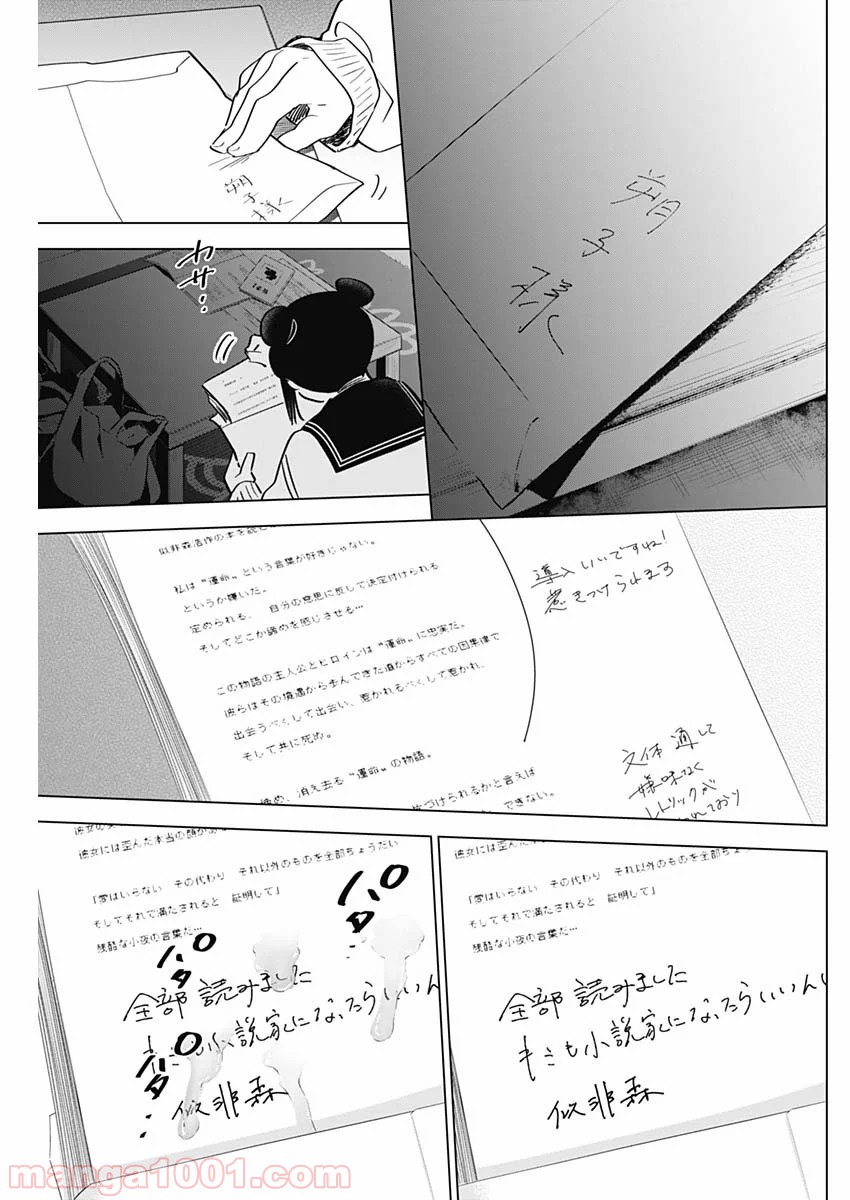 朔子様
朔子様
ワサ…
私は〝運命〟という言葉が好きじゃない。
というか嫌いだ。
定められる、自分の意思に反して決定付けられる
そしてどこか諦めを感じさせる…
この物語の主人公とヒロインは〝運命〟に忠実だ。
彼らはその境遇から歩んできた道からすべての因果律で
出会うべくして出会い、惹かれるべくして惹かれ、
そして共に死ぬ。
諦め、消え去る〝運命〟の物語。
づけられるかと言えば
できない。
導入いいですね！
惹きつけられます
文体通して
嫌味なく
レトリックが
れており
彼女には歪んだ本当の顔があ
「愛はいらない　その代わり　それ以外のものを全部ちょ
そしてそれで満たされると　証明して」
残酷な小夜の言葉だ…
全部読みました
キミも小説家になったらいいん
似非森
彼女には歪んだ本当の顔があ
「愛はいらない　その代わり　それ以外のものを全部ちょうだい
そしてそれで満たされると　証明して」
残酷な小夜の言葉だ…
パタ
パタ
パタ…
全部読みました
キミも小説家になったらいいん
似非森
manga1001.com